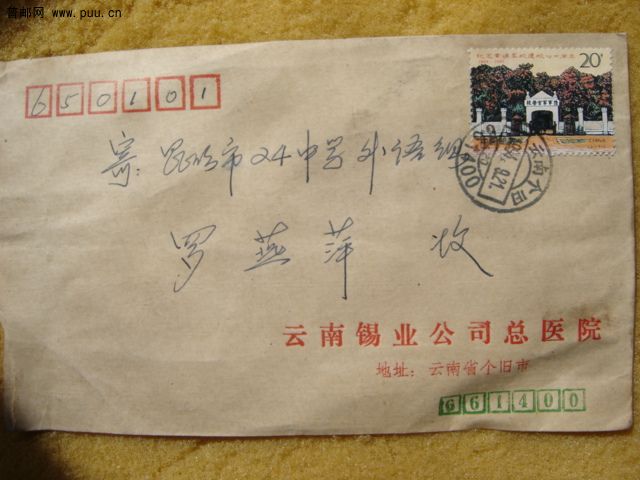 普邮网 www.puu.cn
20分
650101
寄: 昆明市24中学外语组
罗燕萍 收
云南个旧
云南锡业公司总医院
地址: 云南省个旧市
661400